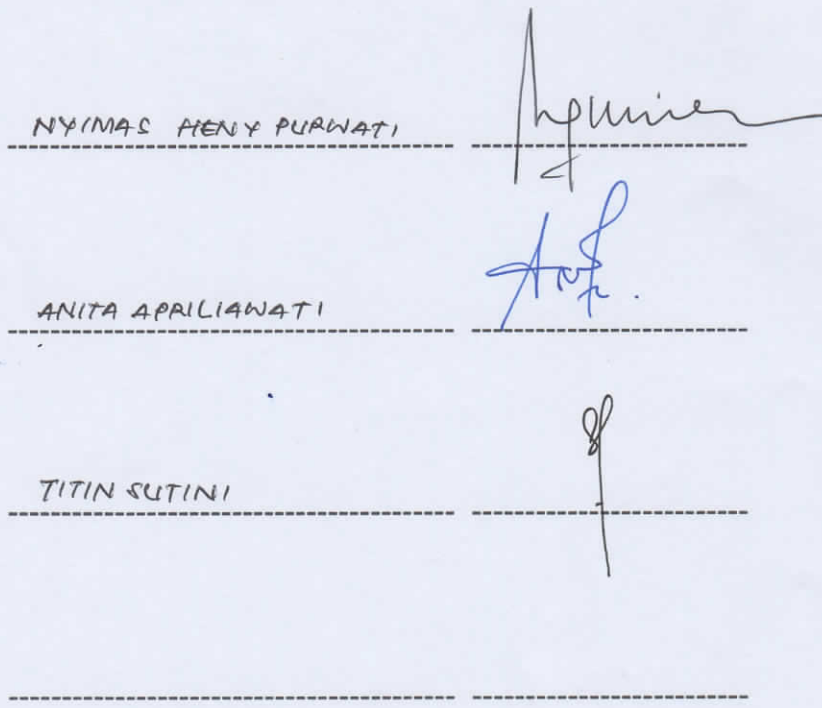 NYIMAS HENY PURWATI
ANITA APRILIAWATI
TITIN SUTINI